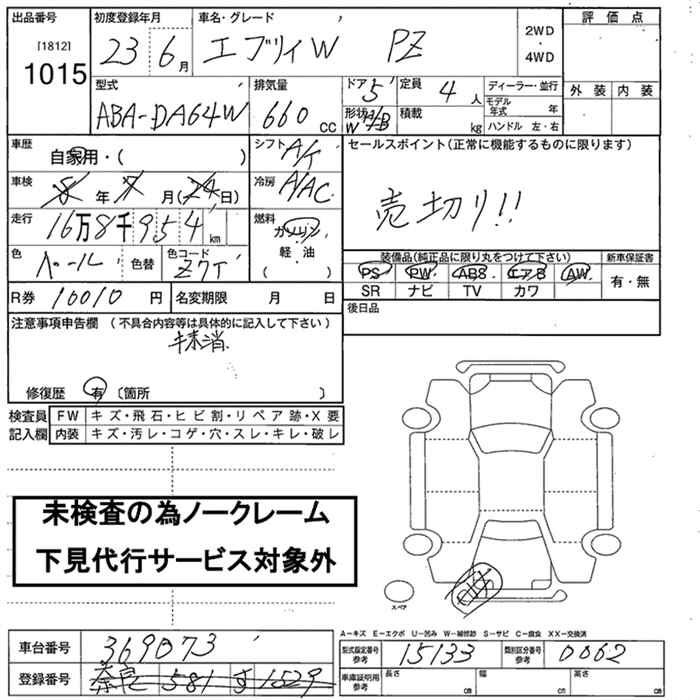 出品番号 初度登録年月 車名・グレード 評価点
[1812] 23 6月 エブリィW PZ 2WD・4WD
1015
型式 排気量 ドア 5 定員 4人 ディーラー・並行 外装 内装
ABA-DA64W 660 CC 形状 W H/B 積載 kg モデル年式 年
ハンドル 左・右
車歴 自家用・( ) シフト A/T セールスポイント(正常に機能するものに限ります)
車検 年 月(24日) 冷房 A/AC 売切り!!
走行 16万8千954km 燃料 ガソリン・軽油( )
色 パール 色替 色コード Z7T 装備品(純正品に限り丸をつけて下さい) 新車保証書
PS PW ABS エアB AW 有・無
SR ナビ TV カワ
R券 10010円 名変期限 月 日 後日品
注意事項申告欄(不具合内容等は具体的に記入して下さい)
抹消
修復歴 有 〔箇所 〕
検査員 FW キズ・飛石・ヒビ割・リペア跡・X要
記入欄 内装 キズ・汚レ・コゲ・穴・スレ・キレ・破レ
未検査の為ノークレーム
下見代行サービス対象外
スペア
A-キズ E-エクボ U-凹み W-補修跡 S-サビ C-腐食 XX-交換済
車台番号 369073 型式指定番号参考 15133 類別区分番号参考 0062
登録番号 奈良 581 す 1529 車庫証明用参考 長さ cm 幅 cm 高さ cm